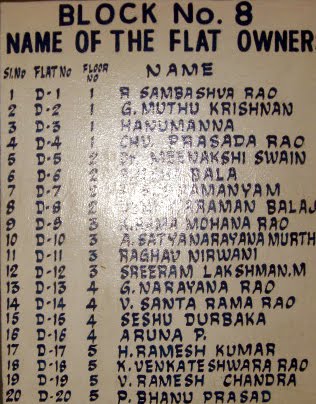 BLOCK No. 8
NAME OF THE FLAT OWNER
Sl.No FLAT No FLOOR NO NAME
1 D-1 1 R SAMBASHVA RAO
2 D-2 1 G. MUTHU KRISHNAN
3 D-3 1 HANUMANNA
4 D-4 1 CHV. PRASADA RAO
5 D-5 2 MEENAKSHI SWAIN
6 D-6 2 BALA
7 D-7 2
8 D-8 2 BALAJ
9 D-9 3 K. RAMA MOHANA RAO
10 D-10 3 A. SATYANARAYANA MURTH
11 D-11 3 RAGHAV NIRWANI
12 D-12 3 SREERAM LAKSHMAN.M
13 D-13 4 G. NARAYANA RAO
14 D-14 4 V. SANTA RAMA RAO
15 D-15 4 SESHU DURBAKA
16 D-16 4 ARUNA P.
17 D-17 5 H. RAMESH KUMAR
18 D-18 5 K. VENKATESHWARA RAO
19 D-19 5 V. RAMESH CHANDRA
20 D-20 5 P. BHANU PRASAD